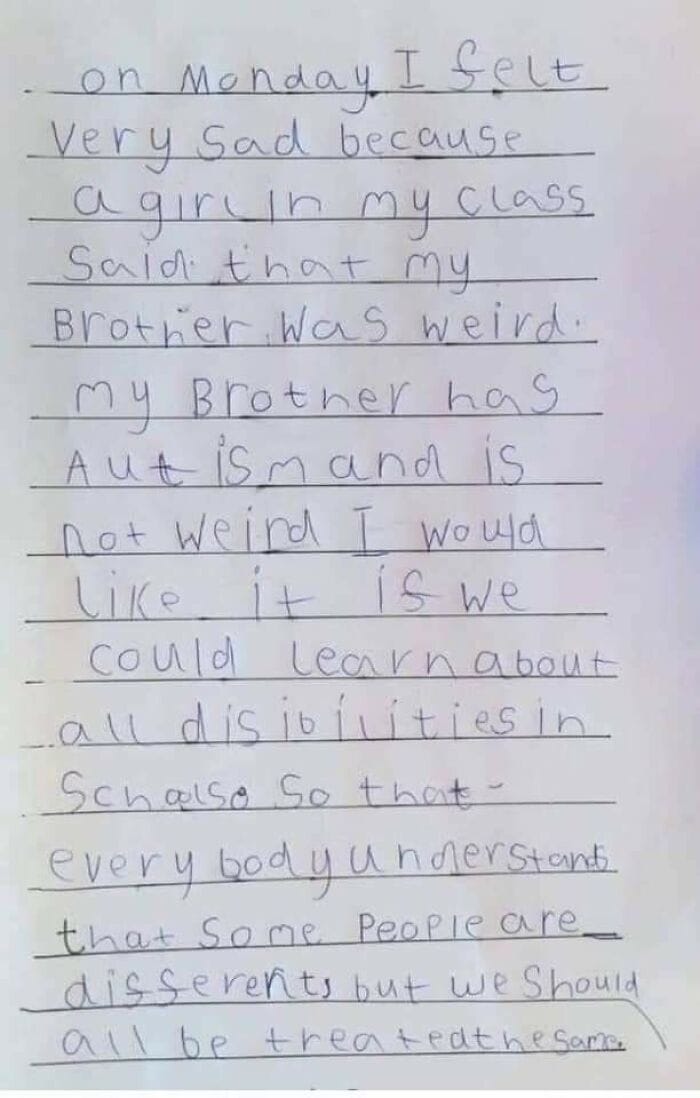 on Monday I felt
very sad because
a girl in my class
Said that my
Brother was weird.
my Brother has
Autism and is
not weird I would
like it if we
could learn about
all disibilities in
Schoolso So that
everybody understants
that some people are
differents but we should
all be treated the same.